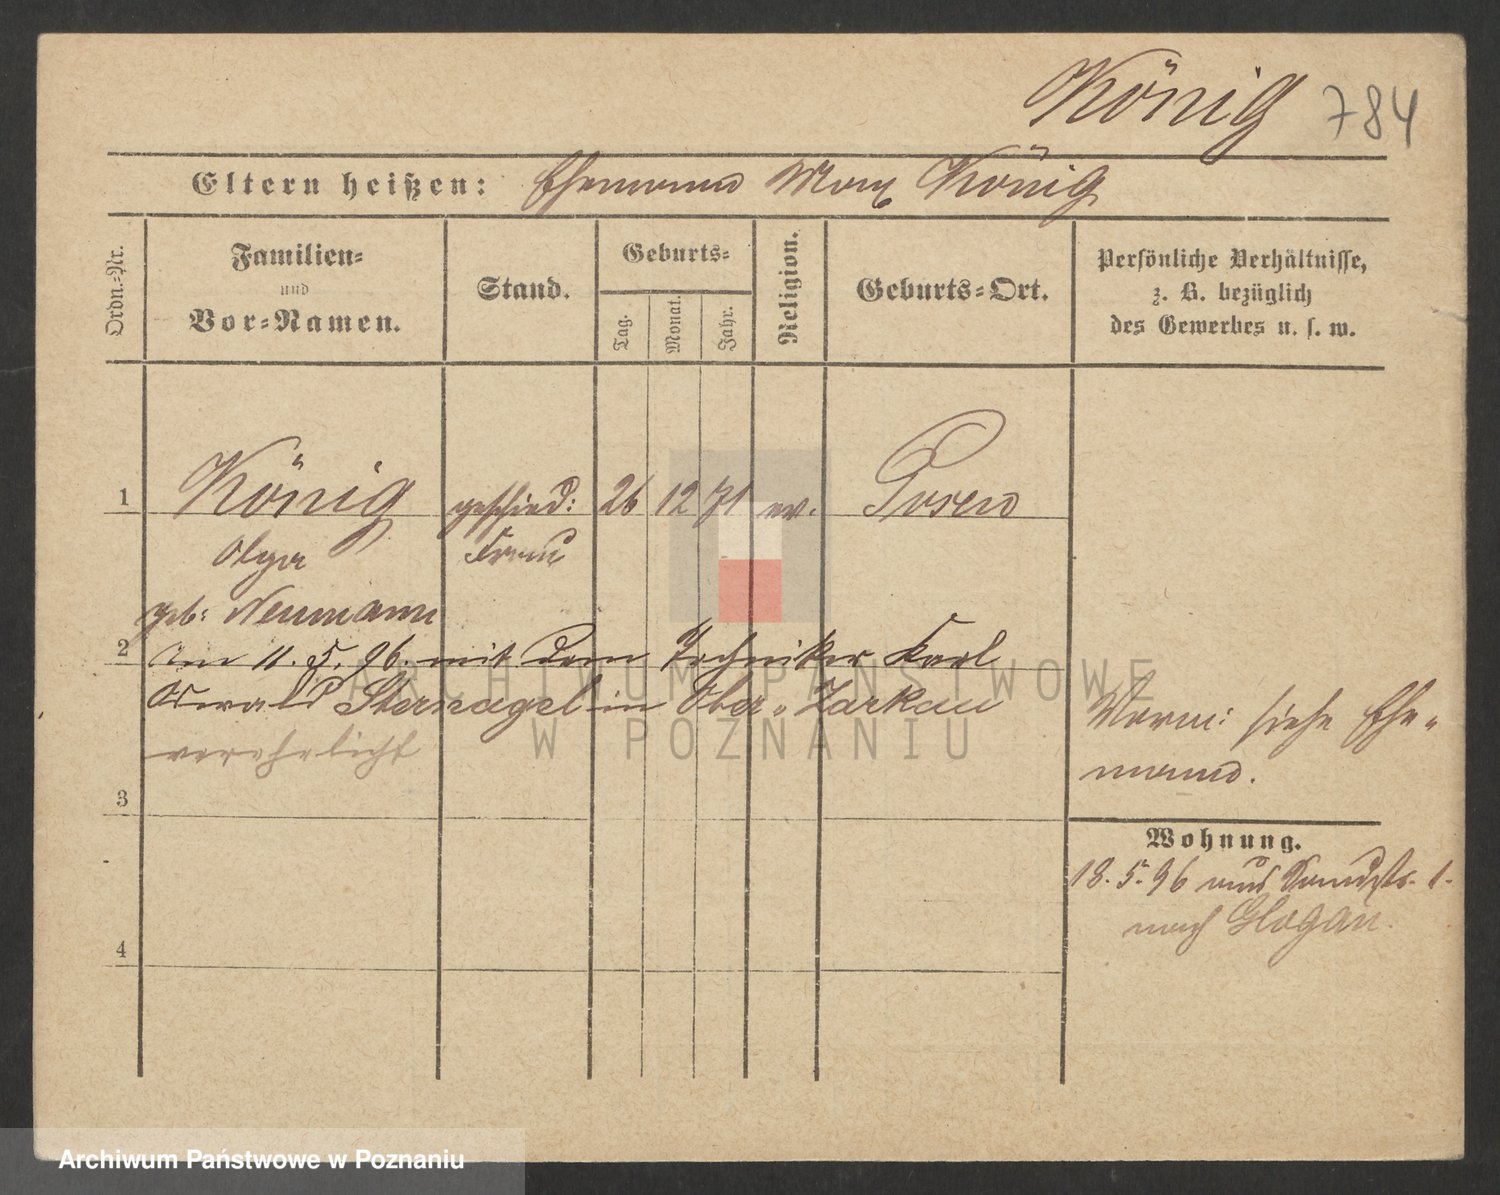 König 784
Eltern heißen: Ehemann Max König
Ordn.=Nr.
Familien=
und
Vor=Namen.
Stand.
Geburts=
Tag.
Monat.
Jahr.
Religion.
Geburts=Ort.
Persönliche Verhältnisse,
z. B. bezüglich
des Gewerbes u. s. w.
1 König geschied: 26 12 71 ev. Posen
Olga Frau
geb: Neumann
2 Am 11. 5. 96. mit dem Techniker Karl
Oswald Sternagel in Ober-Zarkau
verehelicht
Verm: siehe Ehe-
mann.
3
Wohnung.
18. 5. 96 aus 1.
nach Glogau.
4
ARCHIWUM PAŃSTWOWE
W POZNANIU
Archiwum Państwowe w Poznaniu